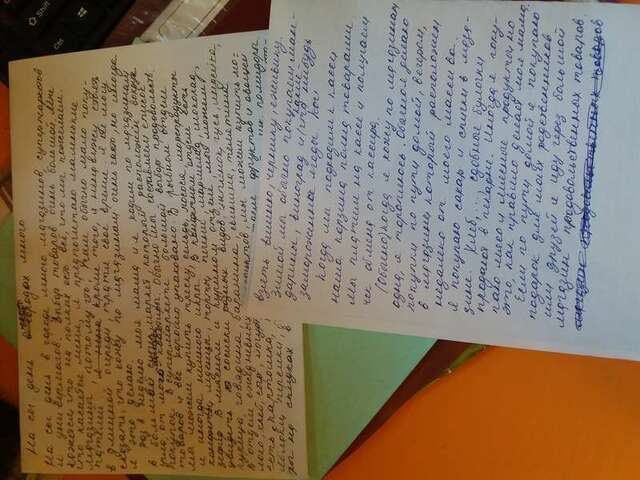 На сог. день в городах много
На сог день в городе много магазинов, супермаркетов
и универмагов. Выбор товаров очень большой. Мне
кажется, что на полках есть всё, что мы пожелаем.
Что касается меня, я предпочитаю маленькие
магазины, потому что там обычно мало поку-
пателей кроме того, я ненавижу стоять
в длинной очереди, тратя своё время. Я не могу
сказать что хожу по магазинам очень часто, но иногда
я это делаю.
раз в неделю моя мама и я ходим по магазинам
в большой супермаркет, который расположен вокруг
угла от моего Обычно мы составляем список
покупок. В супермаркете большой выбор продовольств.
товаров и все хорошо упаковано. В рыбном отделе
мы можем купить треску, сельдь, лосося, морепродукты
и иногда немного икры. В отделе есть
конфеты, торты, печенье, мармелад, шоколад,
В мясном и курином отделе мы можем
увидеть сосиски разных видов, цыплёнок, гусь, индейка,
курицу, говядина, баранина, свинина, телятина
в отделе ежедневной мы можем купить мо-
локо, хлеб, сыр, йогурт фруктов и овощей
есть картошка, помидоры
яблоки, персики,
на скидках в
взять вишню, чернику, ежевику.
Зимой мы обычно покупаем ман-
дарины, виноград и какие нибудь
замороженные ягоды.
Когда мы подходим к кассе
наша корзина полна товарами
Мы платим на кассе и получаем
чек обмена от кассира.
(Обычно) когда я хожу по магазинам
одна, я тороплюсь. Обычно я делаю
покупки по пути домой, вечером,
в магазине который расположен
недалеко от моего массива.
Я покупаю сахар и спички в мага-
зине. Хлеб, ..., сдобные булочки
продают в пекарне. Иногда я поку-
паю мясо и мясные продукты но
это, как правило делает моя мама.
Если по пути домой я покупаю
подарок для моих родственников
или друзей я иду через большой
магазин продовольственных товаров.
магазин продовольственных товаров